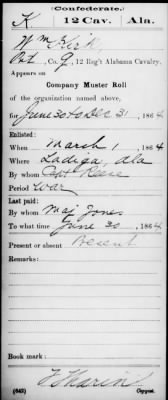 (Confederate.)
K 12 Cav. Ala.
Wm Kirk
Pvt, Co. G, 12 Reg't Alabama Cavalry.
Appears on
Company Muster Roll
of the organization named above,
for June 30 to Dec 31, 1864
Enlisted:
When March 1, 1864
Where Ladiga, Ala
By whom Capt Reese
Period War
Last paid:
By whom Maj Jones
To what time June 30, 1864
Present or absent Present
Remarks:
Book mark:
(642) Copyist.